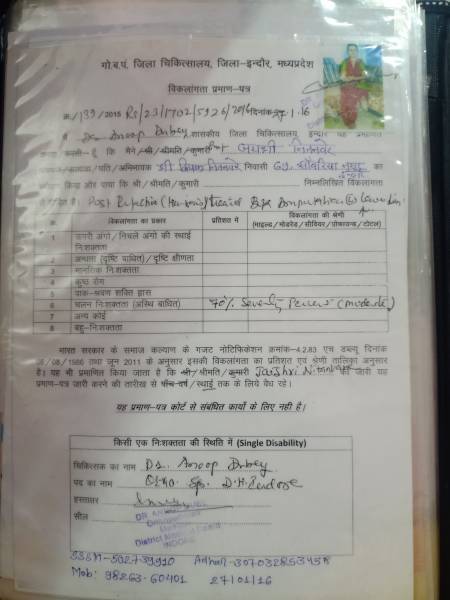 गो.ब.पं. जिला चिकित्सालय, जिला-इन्दौर, मध्यप्रदेश
विकलांगता प्रमाण-पत्र
क्र./139/2015 RS/23/1702/5926/2016 दिनांक 1.16
मै Dr. Anoop Dubey शासकीय जिला चिकित्सालय, इन्दौर यह प्रमाणित
करता/करती हूँ कि मैने/श्री/श्रीमति/कुमारी जयश्री नितनवरे
निवासी 69, साँवरिया नगर का
श्री/श्रीमति/कुमारी निम्नलिखित विकलांगता
विकलांगता का प्रकार प्रतिशत में विकलांगता की श्रेणी
(माइल्ड/मोडरेड/सीवियर/प्रोफाउन्ड/टोटल)
1 ऊपरी अंगो/निचले अंगो की स्थाई
निःशक्तता
2 अन्धता (दृष्टि बाधित)/दृष्टि क्षीणता
3 मानसिक निःशक्तता
4 कुष्ठ रोग
5 वाक-श्रवण शक्ति ह्रास
6 चलन निःशक्तता (अस्थि बाधित) 70%
7 अन्य कोई
8 बहु-निःशक्तता
भारत सरकार के समाज कल्याण के गजट नोटिफिकेशन क्रमांक-4.2.83 एच डब्ल्यू दिनांक
06/08/1986 तथा जून 2011 के अनुसार इसकी विकलांगता का प्रतिशत एवं श्रेणी तालिका अनुसार
है। यह भी प्रमाणित किया जाता है कि श्री/श्रीमति/कुमारी Jaishri को जारी यह
प्रमाण-पत्र जारी करने की तारीख से पाँच वर्ष/स्थाई तक के लिये वैध रहे।
यह प्रमाण-पत्र कोर्ट से संबंधित कार्यो के लिए नही है।
किसी एक निःशक्तता की स्थिति में (Single Disability)
चिकित्सक का नाम Dr. Anoop Dubey
पद का नाम D.H. Indore
हस्ताक्षर
सील
District Medical Board
INDORE
SSSM-502739910 Adhar-307032853458
Mob: 98263-60401 27/01/16